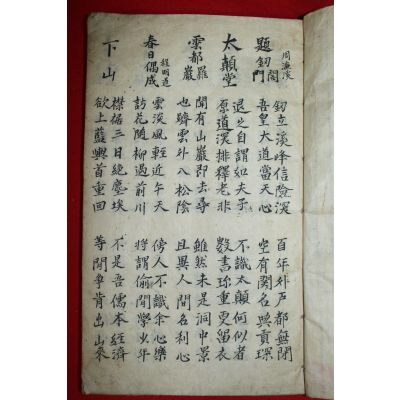 題釰閣門
周濂溪
釰立溪峰信險深
吾皇大道當天心
百年外戶都無閉
空有関名與貢琛
太顚堂
退之自謂如夫子
原道深排釋老非
不識太顚何似者
數書珎重更留衣
雲都羅巖
聞有山巖即去尋
也躋雲外入松陰
雖然未是洞中景
且異人間名利心
春日偶成
程明道
雲淡風輕近午天
訪花隨柳過前川
傍人不識余心樂
將謂偷閒學少年
下山
襟裾三日絶塵埃
欲上藍輿首重回
不是吾儒本經濟
等閒爭肯出山來